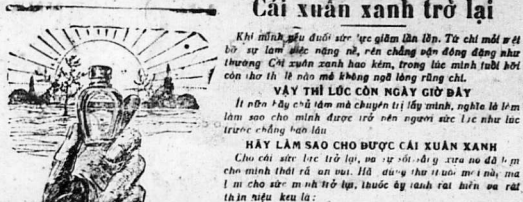 Cái xuân xanh trở lại
Khi mình yếu đuối sức lực giãm lần lần. Từ chỉ mỏi mệt
bỡ sự làm việc nặng nề, rên chẳng vận động động như
thường Cái xuân xanh hao kém, trong lúc mình tuổi hởi
còn thơ thì lẽ nào mà không ngã lòng rũng chí.
VẬY THÌ LÚC CÒN NGÀY GIỜ ĐÂY
Ít nữa hãy chú tâm mà chuyên trị lấy mình, nghĩa là làm
làm sao cho mình được trở nên người sức lực như lúc
trước chẳng bao lâu
HÃY LÀM SAO CHO ĐƯỢC CÁI XUÂN XANH
Cho cái sức lực trở lại, và sự xưa nó đã làm
cho mình thái rã an vui. Hã dùng thứ nầy, mà
làm cho sức mình trở lại, thuốc ấy lành rất hiền và rất
thần hiệu kêu là :